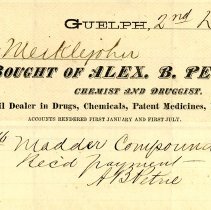 GUELPH, 2nd
Meiklejohn
BOUGHT OF ALEX. B. PE
CHEMIST AND DRUGGIST.
il Dealer in Drugs, Chemicals, Patent Medicines,
ACCOUNTS RENDERED FIRST JANUARY AND FIRST JULY.
Madder Compound
Rec'd payment
A B Petrie